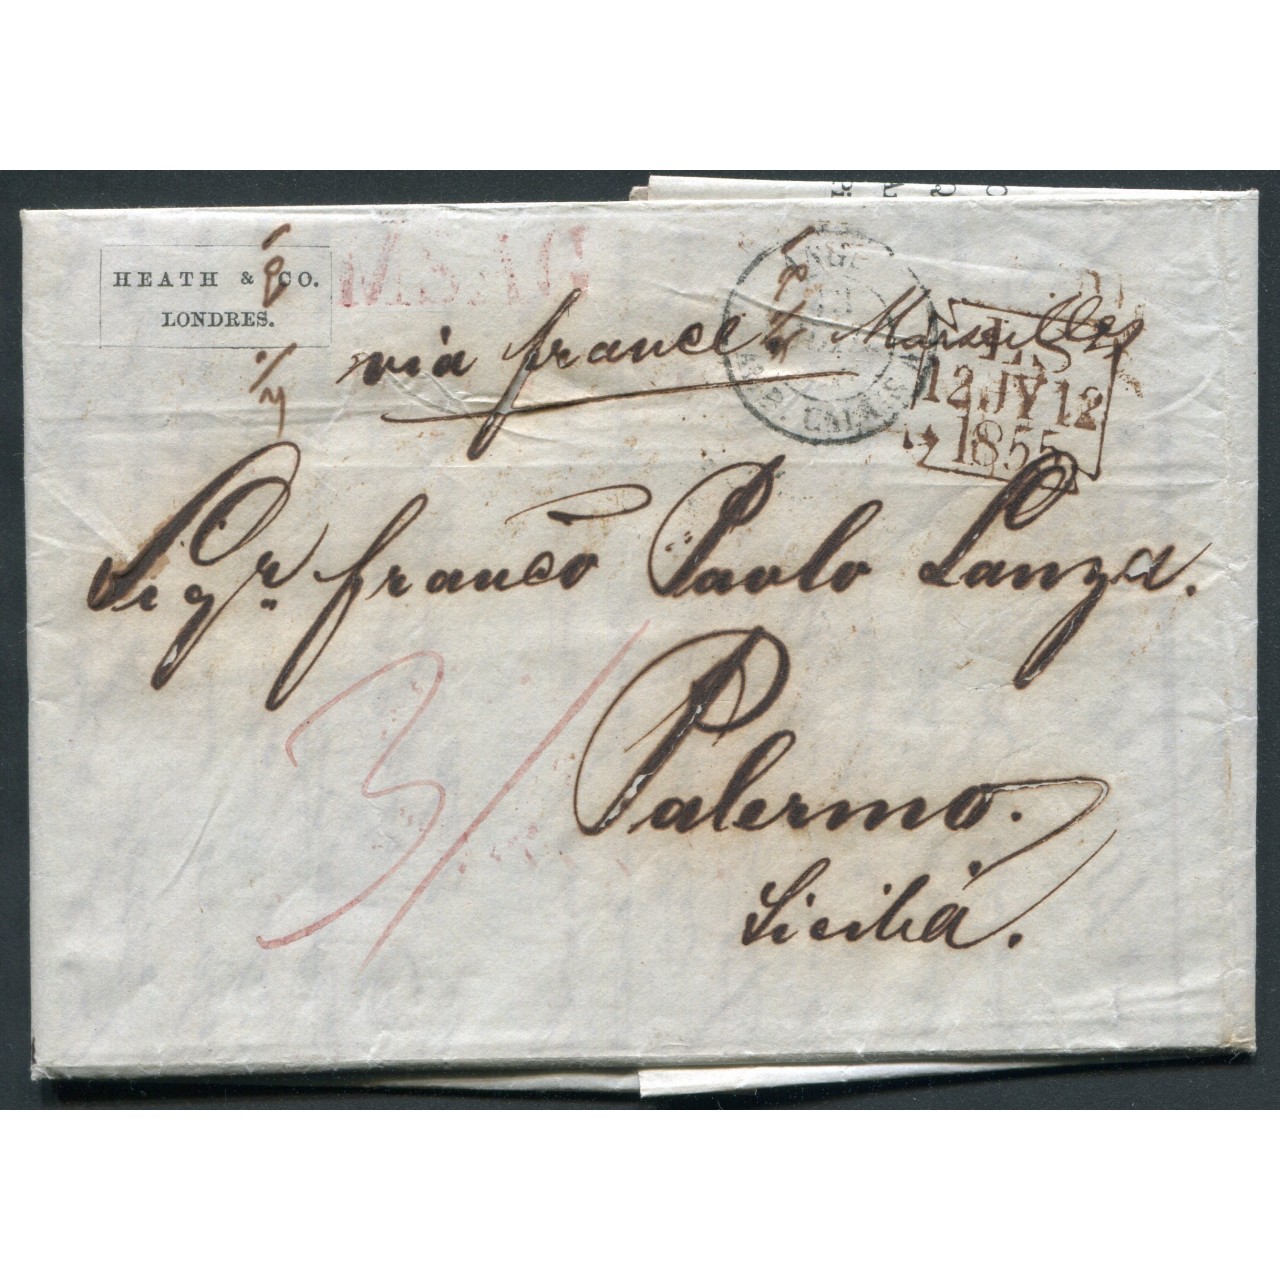 HEATH & CO.
LONDRES.
via france Marseilles
LS
12 JY 12
1855
ANGL.
CALAIS
Sigr. franco Paolo Lanza.
3/
Palermo.
Sicilia.